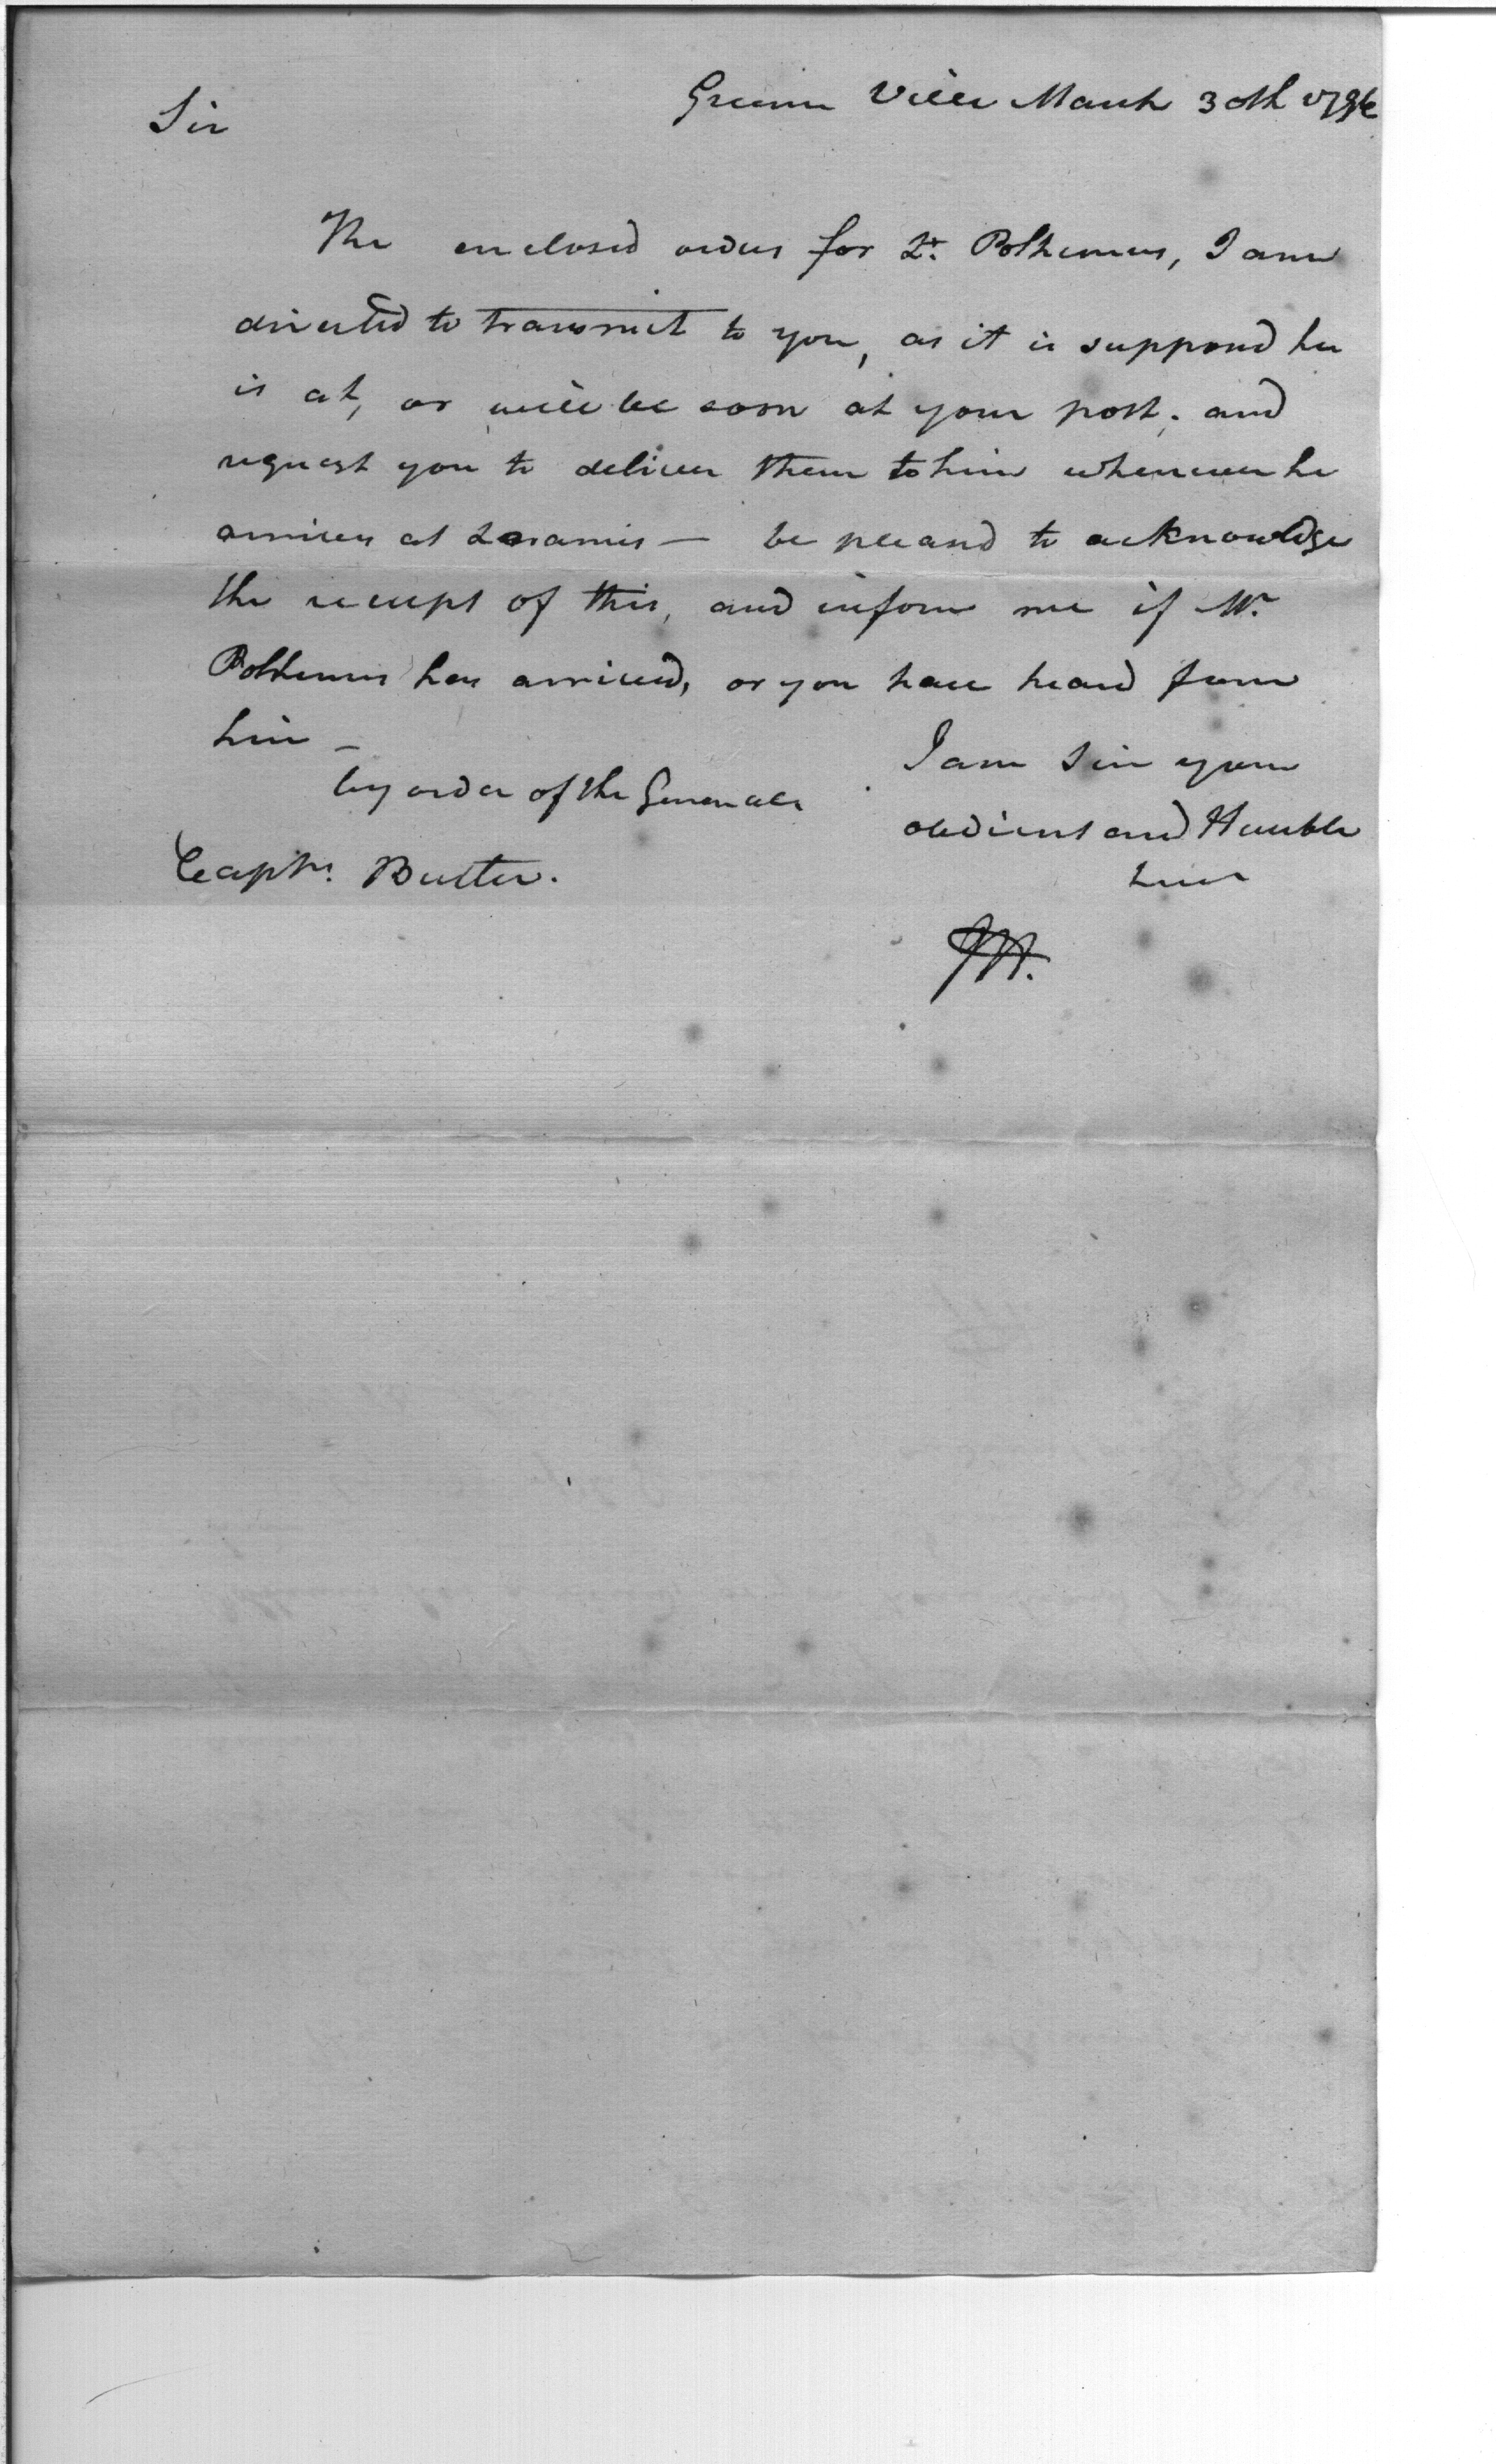 Greene Ville March 30th 1796
Sir
The enclosed orders for Lt. Polhemus, I am
directed to transmit to you, as it is supposed he
is at, or will be soon at your post; and
request you to deliver them to him whenever he
arrives at Loramis — be pleased to acknowledge
the receipt of this, and inform me if Mr.
Polhemus has arrived, or you have heard from
him —
by order of the General
I am Sir your
obedient and Humble
Captn. Butler.